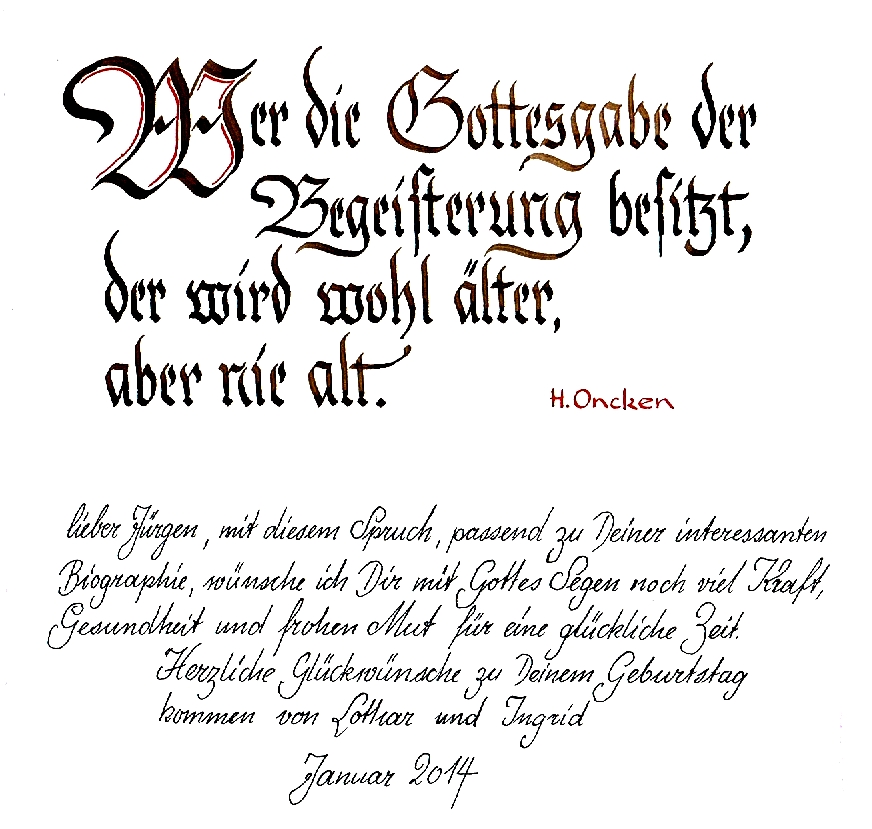 Wer die Gottesgabe der
Begeisterung besitzt,
der wird wohl älter,
aber nie alt.
H. Oncken
lieber Jürgen, mit diesem Spruch, passend zu Deiner interessanten
Biographie, wünsche ich Dir mit Gottes Segen noch viel Kraft,
Gesundheit und frohen Mut für eine glückliche Zeit.
Herzliche Glückwünsche zu Deinem Geburtstag
kommen von Lothar und Ingrid
Januar 2014